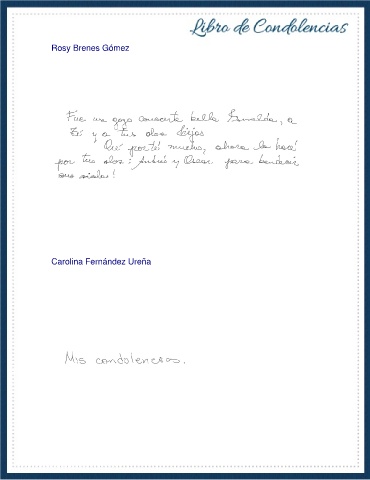 Libro de Condolencias
Rosy Brenes Gómez
Fue un gozo conocerte bella Esmelda, a
ti y a tus dos hijos.
por ti mucho, ahora lo haré
por tus dos: y Oscar para bendecir
sus vidas!
Carolina Fernández Ureña
Mis condolencias.